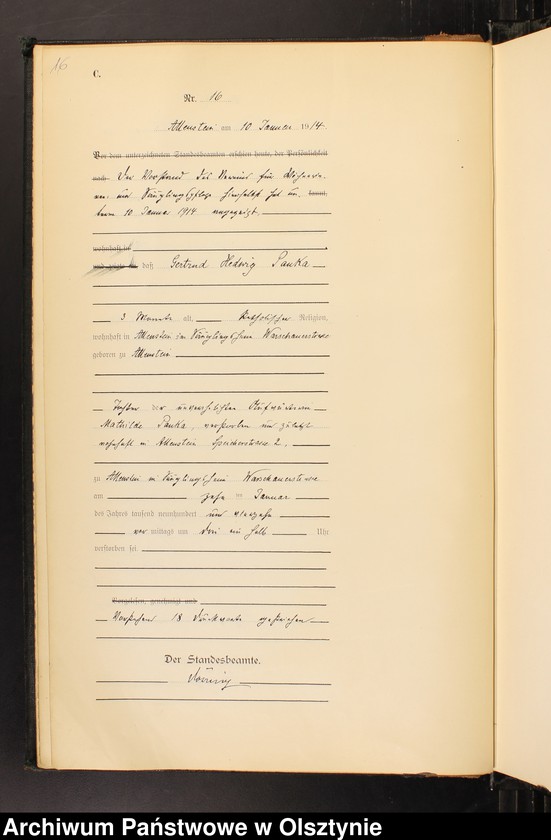 16
C.
Nr. 16
Allenstein am 10 Januar 1914
Vor dem unterzeichneten Standesbeamten erschien heute, der Persönlichkeit
nach
Der Vorstand des Vereins für Wöchnerin-
nen und Säuglingspflege hierselbst hat un
term 10 Januar 1914 angezeigt,
wohnhaft in
und zeigte an, daß Gertrud Hedwig Panka
3 Monate alt, katholischer Religion,
wohnhaft in Allenstein im Säuglingsheim Warschauerstrasse
geboren zu Allenstein
Tochter der unverehelichten
Mathilde Panka, verstorben und zuletzt
wohnhaft in Allenstein Speicherstrasse 2,
zu Allenstein im Säuglingsheim Warschauerstrasse
am zehnten Januar
des Jahres tausend neunhundert und vierzehn
vor mittags um drei ein halb Uhr
verstorben sei
Vorgelesen, genehmigt und
Vorstehend 18 Druckworte gestrichen
Der Standesbeamte.
Archiwum Państwowe w Olsztynie